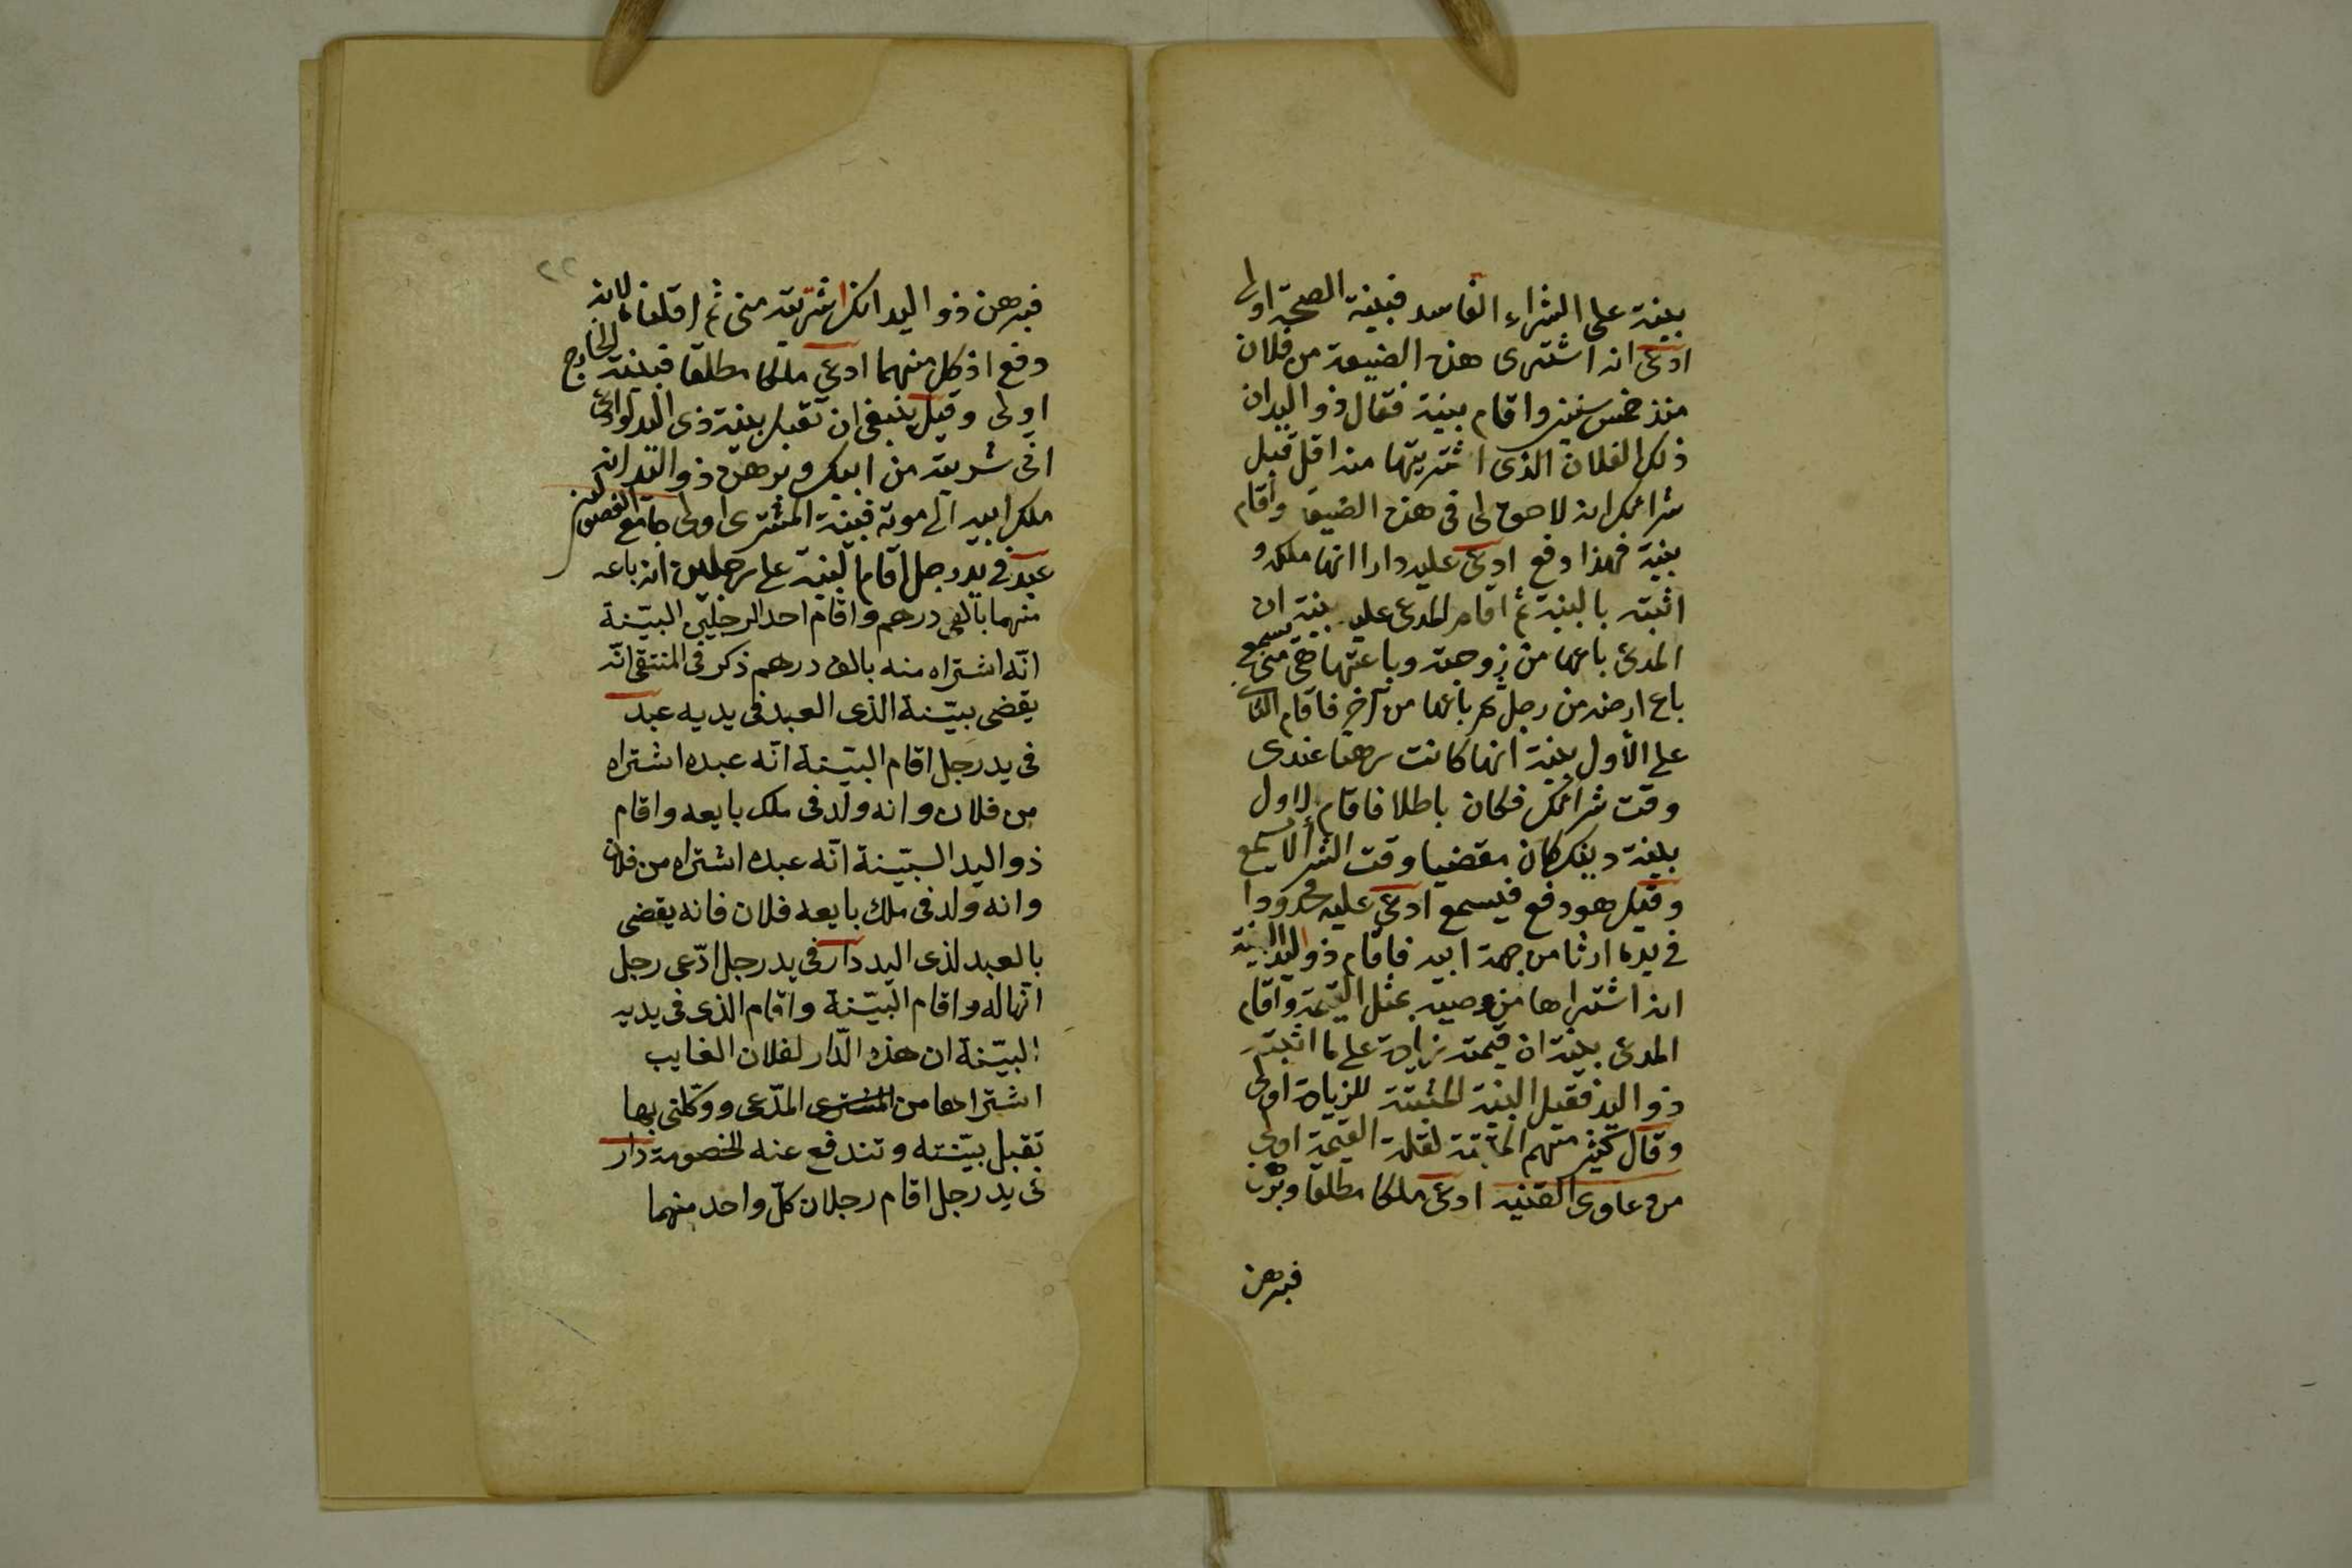 بينة على الشراء الفاسد فبينة الصحة اولى
ادعى انه اشترى هذه الضيعة من فلان
منذ خمس سنين واقام بينة فقال ذو اليد ان
ذلك الفلان الذى اشتريتها منه اقر قبل
شرائك انه لا حق لى فى هذه الضيعة واقام
بينة فهذا دفع ادعى عليه دارا انها ملكه و
اثبته بالبينة ثم اقام المدعى عليه بينة ان
المدعى باعها من زوجته وباعتها هى منى يسمع
باع ارضه من رجل ثم باعها من آخر فاقام الثانى
على الأول بينة انها كانت رهنا عندى
وقت شرائك فكان باطلا فاقام الاول
بينة دينك كان مقضيا وقت الشرا لا يسمع
وقيل هو دفع فيسمع ادعى عليه محدودا
فى يده ارثا من جهة ابيه فاقام ذو اليد البينة
انه اشتراها من وصيه بمثل القيمة واقام
المدعى بينة ان قيمته زيادة على ما اثبته
ذو اليد فقيل البينة المثبتة للزيادة اولى
وقال كثير منهم المثبتة لقلة القيمة اولى
من دعاوى القنية ادعى ملكا مطلقا وبرهن
فبرهن
٢٢
فبرهن ذو اليد انك اشتريته منى ثم اقلنا لانه
دفع اذ كل منهما ادعى ملكا مطلقا فبينة الخارج
اولى وقيل ينبغى ان تقبل بينة ذى اليد لو ادعى
انى شريته من ابيك وبرهن ذو اليد انه
ملك ابيه الى موته فبينة المشترى اولى جامع الفصولين
عبد فى يد رجل اقام البينة على رجلين انه باعه
منهما بالفى درهم واقام احد الرجلين البيّنة
انّه اشتراه منه بالف درهم ذكر فى المنتقى انّه
يقضى ببيّنة الذى العبد فى يديه عبد
فى يد رجل اقام البيّنة انّه عبده اشتراه
من فلان وانه ولد فى ملك بايعه واقام
ذو اليد البيّنة انّه عبده اشتراه من فلان
وانه ولد فى ملك بايعه فلان فانه يقضى
بالعبد لذى اليد دار فى يد رجل ادّعى رجل
انّها له واقام البيّنة واقام الذى فى يديه
البيّنة ان هذه الدّار لفلان الغايب
اشتراها من المشترى المدّعى ووكّلنى بها
تقبل بيّنته وتندفع عنه الخصومة دار
فى يد رجل اقام رجلان كلّ واحد منهما